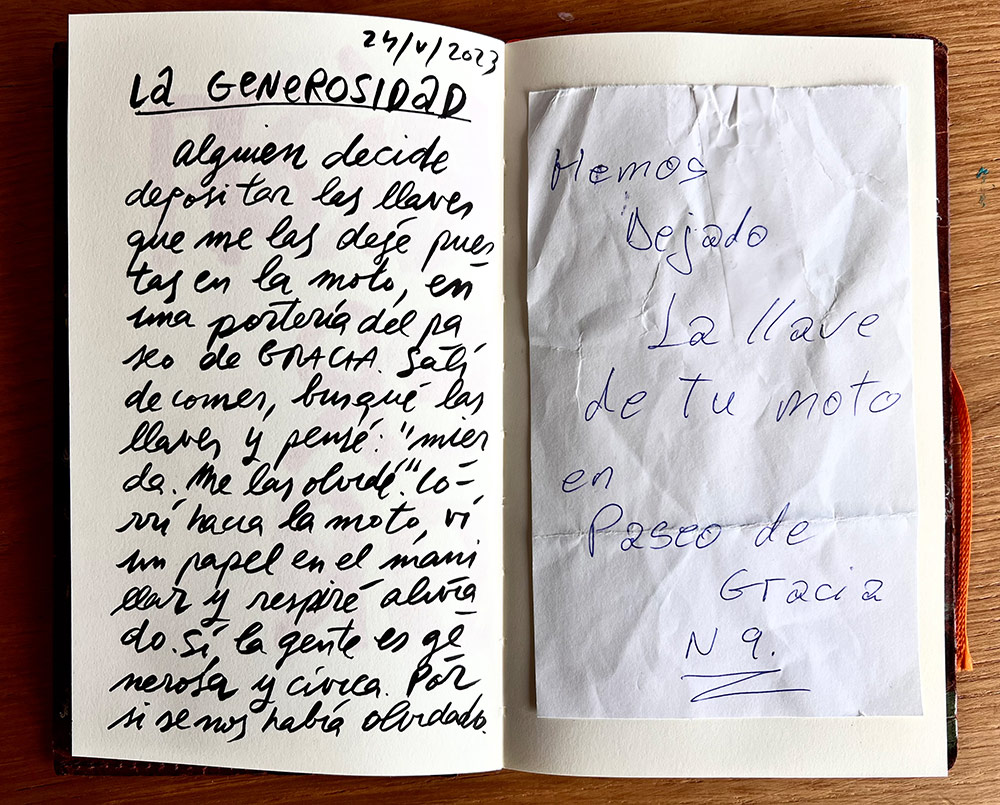 24/V/2023
La GENEROSIDAD
Alguien decide
depositar las llaves
que me las dejé pues
tas en la moto, en
una portería del pa
seo de GRACIA. Salí
de comer, busqué las
llaves y pensé: "mier
da. Me las olvidé". Co-
rrí hacia la moto, vi
un papel en el mani
llar y respiré alivia
do. Sí, la gente es ge
nerosa y cívica. Por
si se nos había olvidado.
Hemos
Dejado
La llave
de tu moto
en
Paseo de
Gracia
N 9.